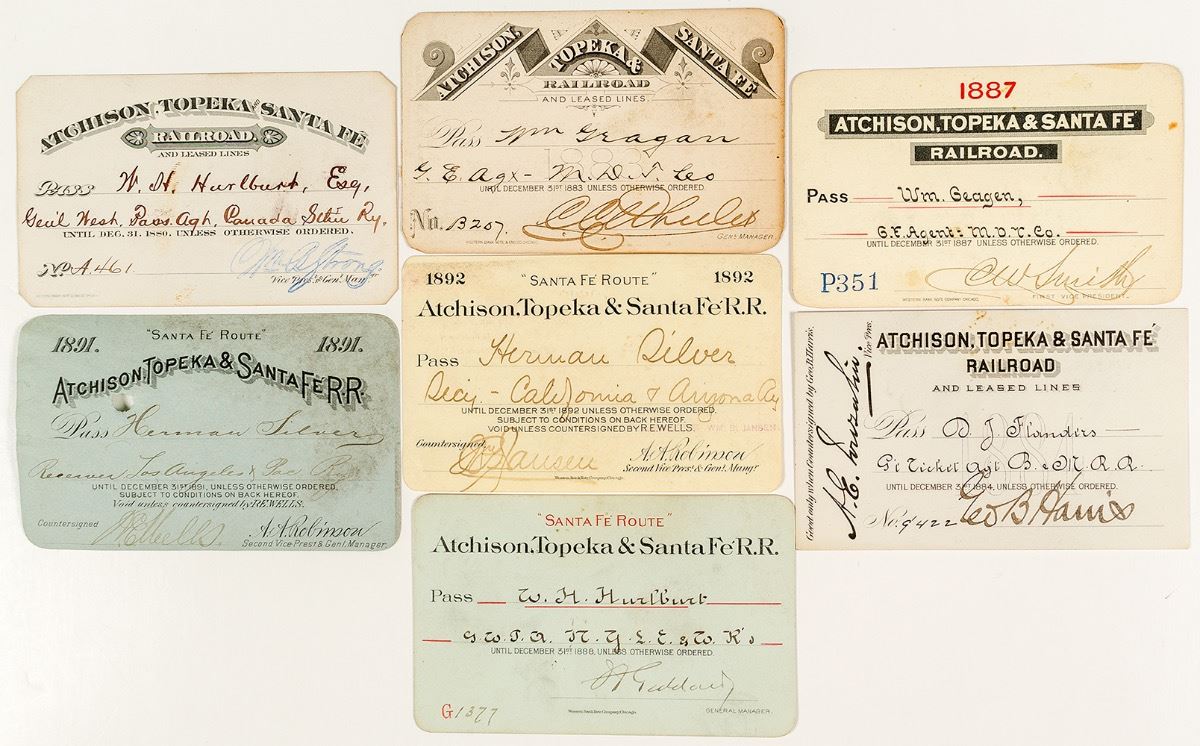 ATCHISON, TOPEKA AND SANTA FÉ
RAILROAD.
AND LEASED LINES
Pass W. H. Hurlburt, Esq,
Gen'l West. Pass. Agt, Canada Sth'n Ry.
UNTIL DEC. 31. 1880. UNLESS OTHERWISE ORDERED.
No. A 461
Vice Pres. & Gen'l Man'gr
ATCHISON, TOPEKA & SANTA FE
RAILROAD
AND LEASED LINES.
Pass Wm Geagan
G. E. Agx- M. D. T. Co
1883
UNTIL DECEMBER 31ST 1883 UNLESS OTHERWISE ORDERED.
No. B207.
C C Wheeler
GENL MANAGER.
1887
ATCHISON, TOPEKA & SANTA FÉ
RAILROAD.
Pass Wm. Geagen,
G. F. Agent M. D. T. Co.
UNTIL DECEMBER 31ST 1887 UNLESS OTHERWISE ORDERED.
P351
C W Smith
WESTERN BANK NOTE COMPANY CHICAGO.
FIRST VICE PRESIDENT.
1891.
"SANTA FÉ ROUTE"
1891.
ATCHISON, TOPEKA & SANTA FÉ R.R.
Pass Herman Silver
Receiver Los Angeles & Pac. Ry
UNTIL DECEMBER 31ST 1891, UNLESS OTHERWISE ORDERED.
SUBJECT TO CONDITIONS ON BACK HEREOF.
Void unless countersigned by R.E.WELLS.
Countersigned
R E Wells
A.A. Robinson
Second Vice Prest & Genl. Manager.
1892
"SANTA FÉ ROUTE"
1892
Atchison, Topeka & Santa Fé R.R.
Pass Herman Silver
Secy - California & Arizona Ry
UNTIL DECEMBER 31ST 1892 UNLESS OTHERWISE ORDERED.
SUBJECT TO CONDITIONS ON BACK HEREOF.
VOID UNLESS COUNTERSIGNED BY R.E.WELLS.
WM. B. JANSEN.
Countersigned
Jansen
A.A. Robinson
Second Vice Prest. & Genl. Mangr.
Western Bank Note Company Chicago.
Good only when Countersigned by Geo. B. Harris.
Vice Pres.
ATCHISON, TOPEKA & SANTA FÉ
RAILROAD
AND LEASED LINES
Pass D. J. Flanders
Gl Ticket Agt B. & M. R. R.
1884
UNTIL DECEMBER 31ST 1884, UNLESS OTHERWISE ORDERED.
No. 9422
Geo B Harris
"SANTA FÉ ROUTE"
Atchison, Topeka & Santa Fé R.R.
Pass W. H. Hurlburt
G W. P. A. N. Y. L. E. & W. R's
UNTIL DECEMBER 31ST 1888, UNLESS OTHERWISE ORDERED.
G1377
Western Bank Note Company Chicago.
GENERAL MANAGER.